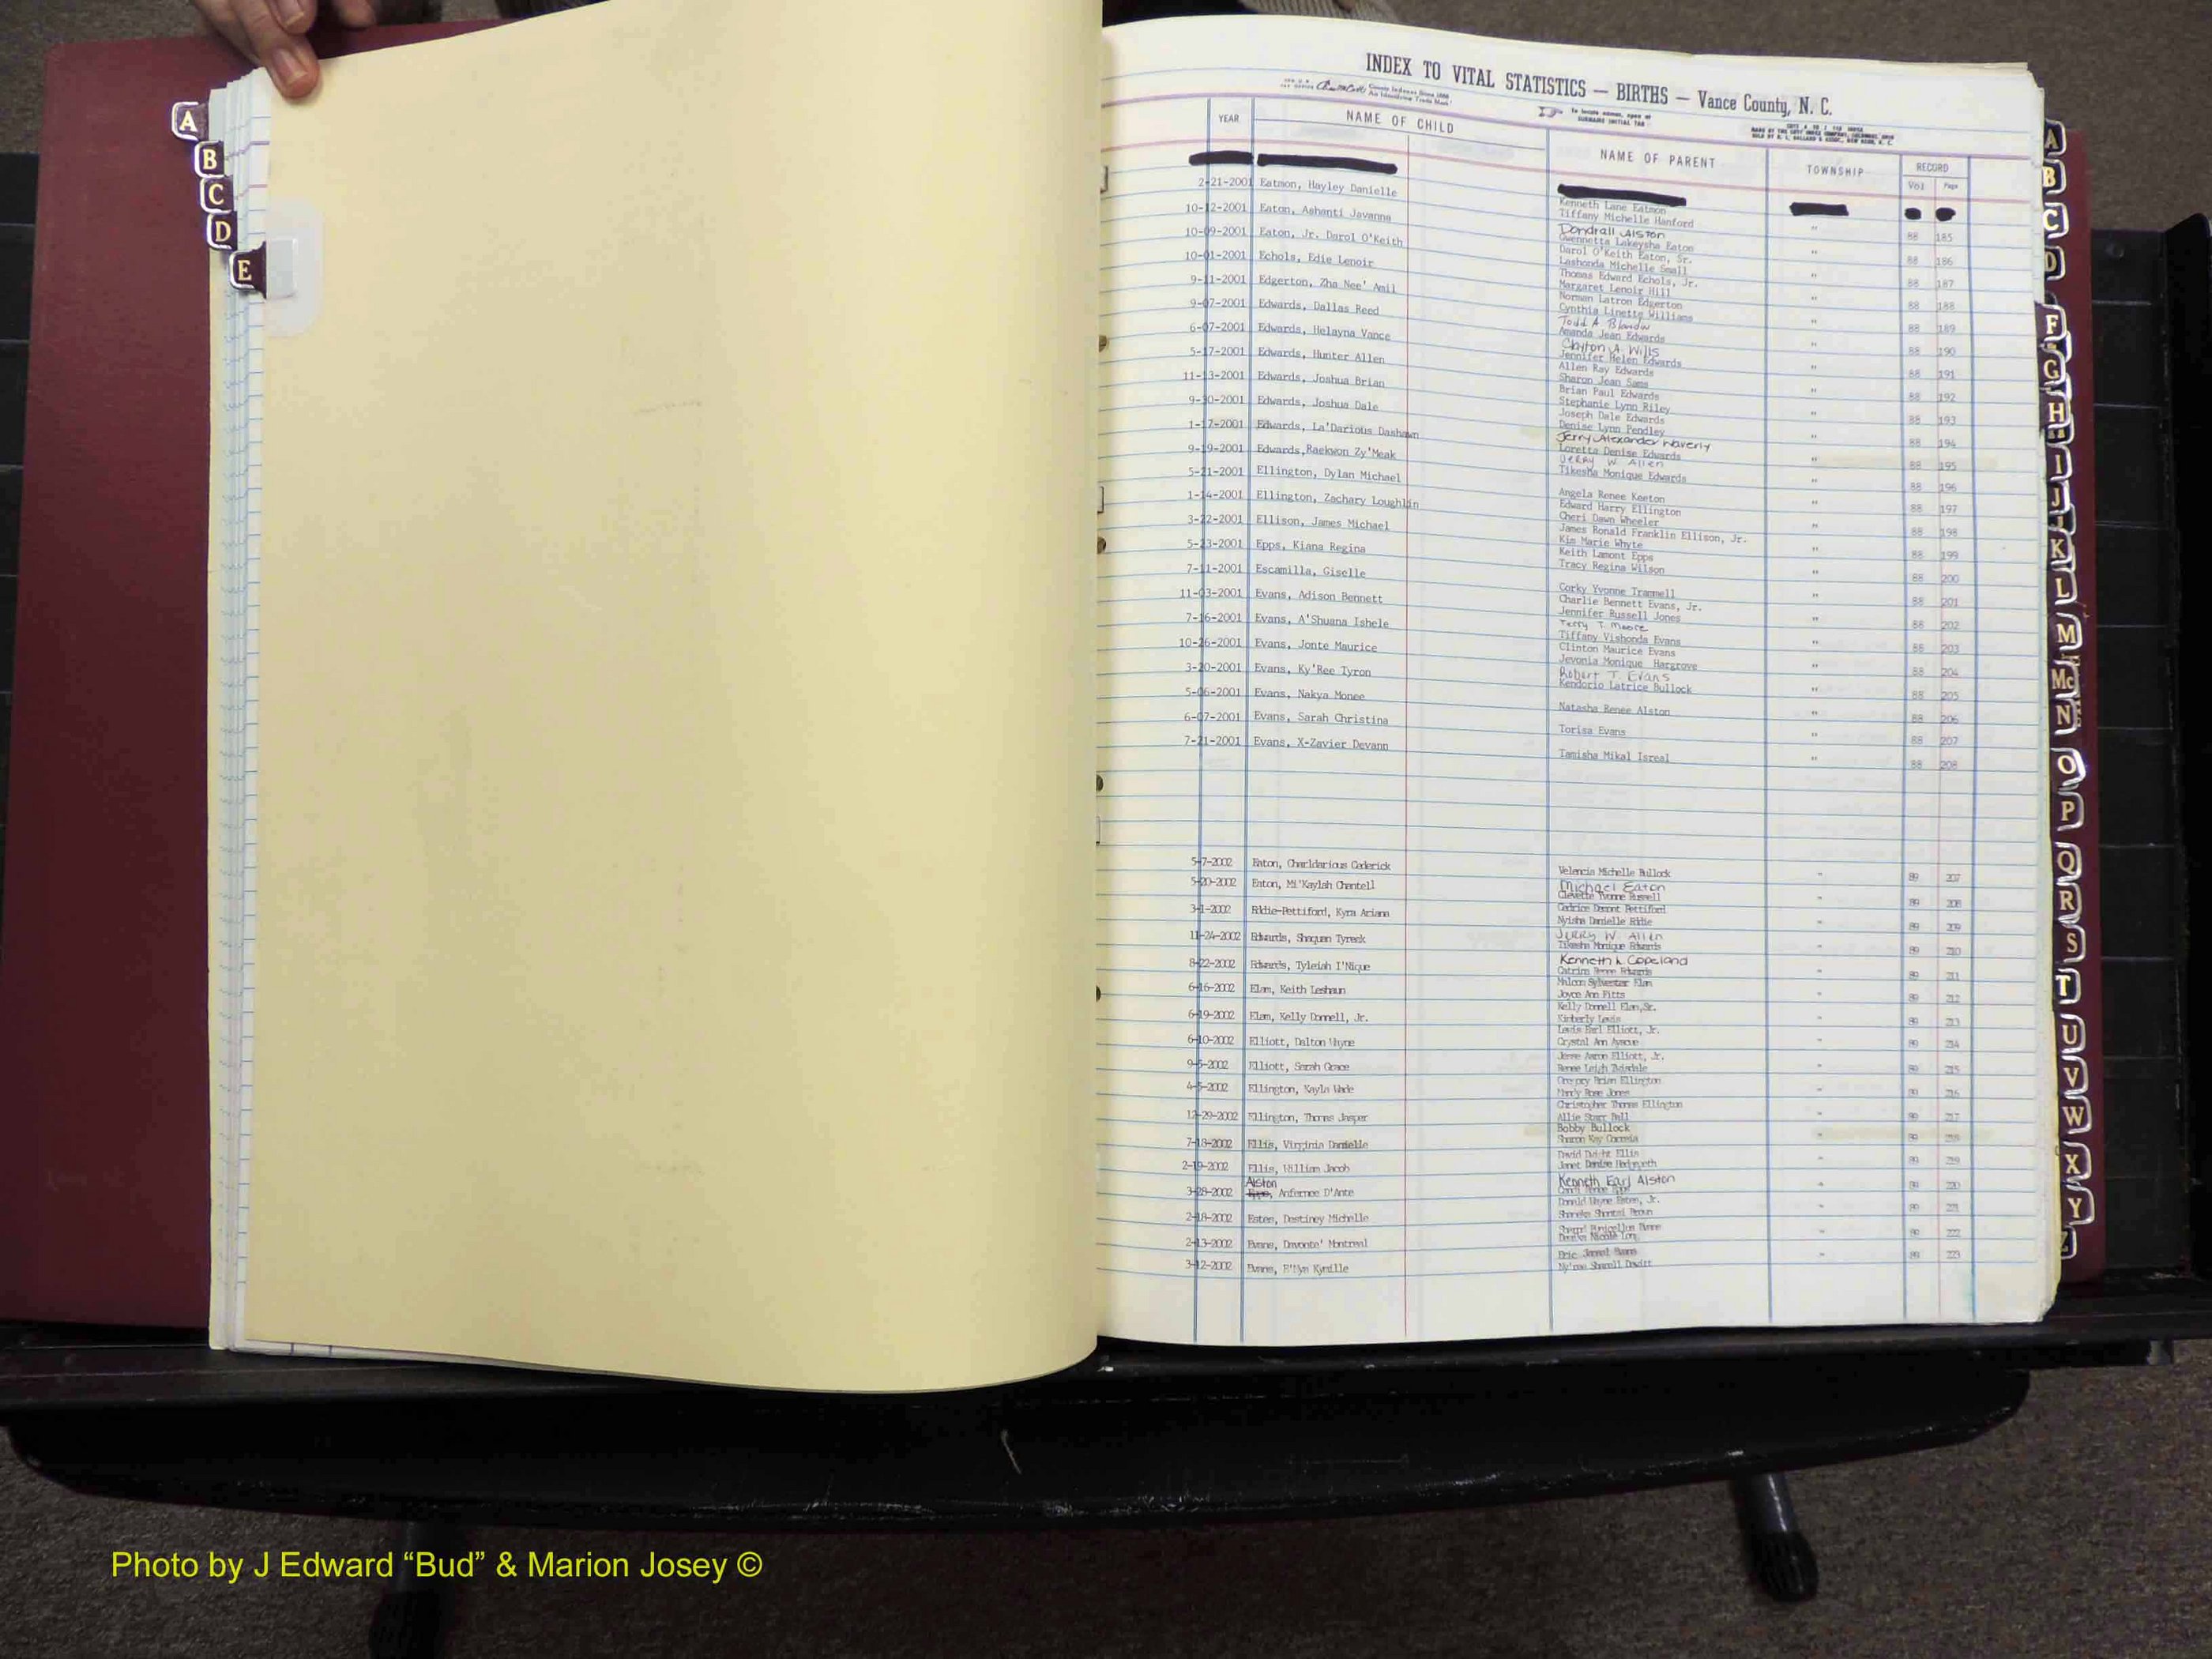 INDEX TO VITAL STATISTICS — BIRTHS — Vance County, N. C.
YEAR NAME OF CHILD NAME OF PARENT TOWNSHIP RECORD
Vol Page
2-21-2001 Eatmon, Hayley Danielle Kenneth Lane Eatmon
Tiffany Michelle Hanford " 88 185
10-12-2001 Eaton, Ashanti Javanna Dondrall Alston
Gwennetta Lakeysha Eaton " 88 186
10-09-2001 Eaton, Jr. Darol O'Keith Darol O'Keith Eaton, Sr.
Lashonda Michelle Small " 88 187
10-01-2001 Echols, Edie Lenoir Thomas Edward Echols, Jr.
Margaret Lenoir Hill " 88 188
9-11-2001 Edgerton, Zha Nee' Amil Norman Latron Edgerton
Cynthia Linette Williams " 88 189
9-07-2001 Edwards, Dallas Reed Todd A.
Amanda Jean Edwards " 88 190
6-07-2001 Edwards, Helayna Vance Clayton A. Wills
Jennifer Helen Edwards " 88 191
5-17-2001 Edwards, Hunter Allen Allen Ray Edwards
Sharon Jean Sams " 88 192
11-13-2001 Edwards, Joshua Brian Brian Paul Edwards
Stephanie Lynn Riley " 88 193
9-30-2001 Edwards, Joshua Dale Joseph Dale Edwards
Denise Lynn Pendley " 88 194
1-17-2001 Edwards, La'Darious Dashawn Jerry Alexander Waverly
Loretta Denise Edwards " 88 195
9-19-2001 Edwards,Raekwon Zy'Meak Jerry W. Allen
Tikesha Monique Edwards " 88 196
5-21-2001 Ellington, Dylan Michael Angela Renee Keeton " 88 197
1-14-2001 Ellington, Zachary Loughlin Edward Harry Ellington
Cheri Dawn Wheeler " 88 198
3-22-2001 Ellison, James Michael James Ronald Franklin Ellison, Jr.
Kim Marie Whyte " 88 199
5-23-2001 Epps, Kiana Regina Keith Lamont Epps
Tracy Regina Wilson " 88 200
7-11-2001 Escamilla, Giselle Corky Yvonne Trammell " 88 201
11-03-2001 Evans, Adison Bennett Charlie Bennett Evans, Jr.
Jennifer Russell Jones " 88 202
7-16-2001 Evans, A'Shuana Ishele Terry T. Moore
Tiffany Vishonda Evans " 88 203
10-26-2001 Evans, Jonte Maurice Clinton Maurice Evans
Jevonia Monique Hargrove " 88 204
3-20-2001 Evans, Ky'Ree Tyron Robert T. Evans
Kendorio Latrice Bullock " 88 205
5-06-2001 Evans, Nakya Monee Natasha Renee Alston " 88 206
6-07-2001 Evans, Sarah Christina Torisa Evans " 88 207
7-21-2001 Evans, X-Zavier Devann Tamisha Mikal Isreal " 88 208
5-7-2002 Eaton, Charldarious Cederick Velencia Michelle Bullock " 89 207
5-20-2002 Eaton, Mi'Kaylah Chantell Michael Eaton
Clevette Yvonne Russell " 89 208
3-1-2002 Eddie-Pettiford, Kyra Ariana Cedrice Demont Pettiford
Nyisha Danielle Eddie " 89 209
11-24-2002 Edwards, Shaquan Tyreek Jerry W. Allen
Tikesha Monique Edwards " 89 210
8-22-2002 Edwards, Tyleiah I'Nique Kenneth L. Copeland
Catrina Renee Edwards " 89 211
6-16-2002 Elam, Keith Leshaun Malcom Sylvester Elam
Joyce Ann Fitts " 89 212
6-19-2002 Elam, Kelly Donnell, Jr. Kelly Donnell Elam,Sr.
Kimberly Lewis " 89 213
6-10-2002 Elliott, Dalton Wayne Lewis Earl Elliott, Jr.
Crystal Ann Ayscue " 89 214
9-5-2002 Elliott, Sarah Grace Jesse Aaron Elliott, Jr.
Renee Leigh Twisdale " 89 215
4-5-2002 Ellington, Kayla Wade Gregory Brian Ellington
Mandy Rose Jones " 89 216
12-29-2002 Ellington, Thomas Jasper Christopher Thomas Ellington
Allie Starr Ball " 89 217
7-18-2002 Ellis, Virginia Danielle Bobby Bullock
Sharon Kay " 89 218
2-19-2002 Ellis, William Jacob David Dwight Ellis
Janet Denise Hedgepeth " 89 219
Alston
3-28-2002 Epps, Anfernee D'Ante Kenneth Earl Alston
Renee Epps " 89 220
2-18-2002 Estes, Destiney Michelle Donald Wayne Estes, Jr.
Shaneka Shontai Brown " 89 221
2-13-2002 Evans, Davonte' Montreal
Nicole Long " 89 222
3-12-2002 Evans, Kymille Eric Jamel Evans
Sharell Dewitt " 89 223
A
B
C
D
E
A
B
C
D
F
G
H
I
J
K
L
M
Mc
N
O
P
Q
R
S
T
U
V
W
X
Y
Z
Photo by J Edward “Bud” & Marion Josey ©